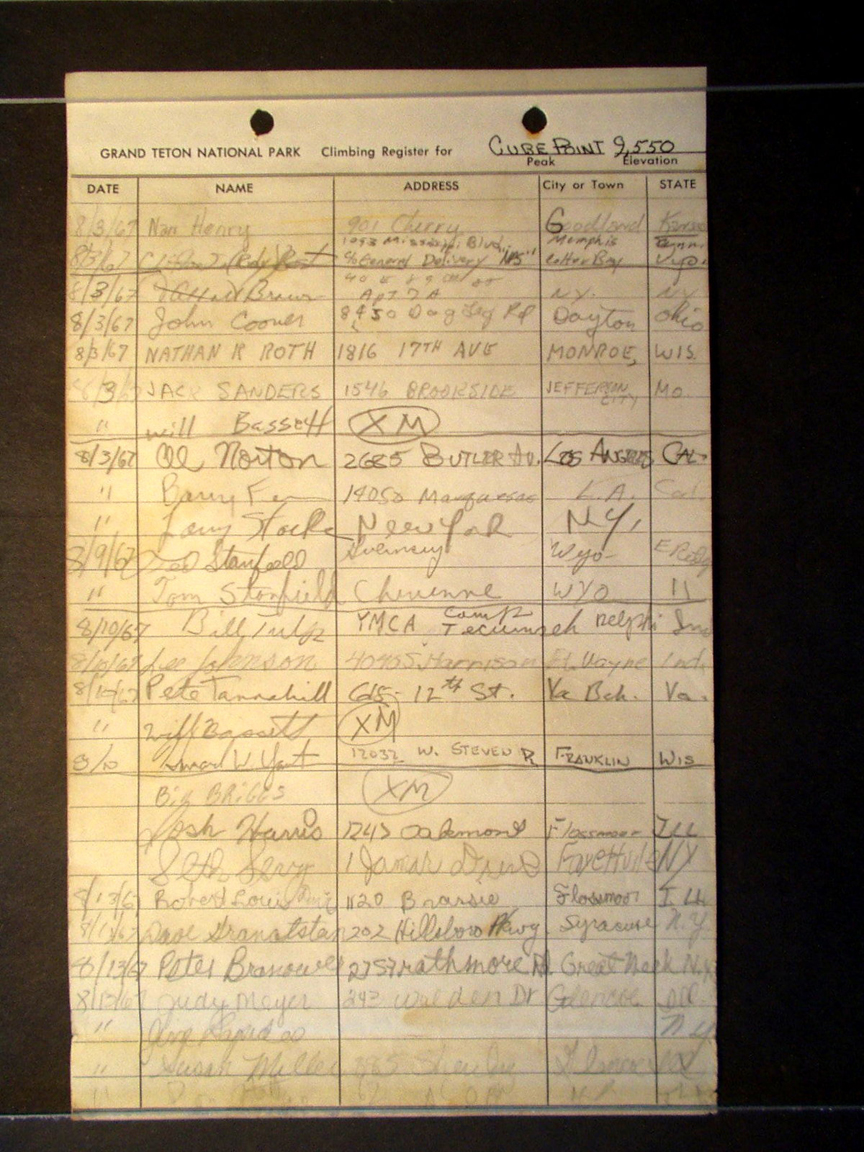 GRAND TETON NATIONAL PARK Climbing Register for CUBE POINT 9,550
Peak Elevation
DATE NAME ADDRESS City or Town STATE
8/3/67 Nan Henry 901 Cherry Goodland
Blvd. Memphis
8/3/67 % General Delivery Wyo.
8/3/67 Brown Apt 7A N.Y. NY
8/3/67 John Cooner 8450 Dog Leg Rd Dayton Ohio
8/3/67 NATHAN R ROTH 1816 17TH AVE MONROE, WIS.
8/3/67 JACK SANDERS 1546 BROOKSIDE JEFFERSON CITY Mo.
" Will Bassett XM
8/3/67 Al Norton 2685 BUTLER AV. LOS ANGELES CAL.
" Barry 14050 Marquesas L.A. Cal.
" Larry New York NY,
8/9/67 Ted Stanfield Wyo
" Tom Stanfield Cheyenne WYO 11
8/10/67 Bill Tulp YMCA Camp Tecumseh Delphi Ind
8/10/67 Lee Johnson 4040 S. Harrison Ft. Wayne Ind.
8/10/67 Pete Tannahill 618- 12th St. Va Bch. Va.
" XM
8/10 W. 12032 W. STEVEN FRANKLIN WIS
BIG BRIGGS XM
Josh Harris 1243 Oakmont Flossmoor ILL
1 Jamar Drive NY
8/13/67 Robert Louis 1120 Brassie Flossmoor Ill
8/13/67 Dave 202 Hillsboro Pkwy. Syracuse N.Y.
8/13/67 Peter 27 Strathmore Rd Great Neck N.Y.
8/13/67 Judy Meyer 243 Walden Dr Glencoe Ill.
" N.Y.
" Susan Miller 885
"